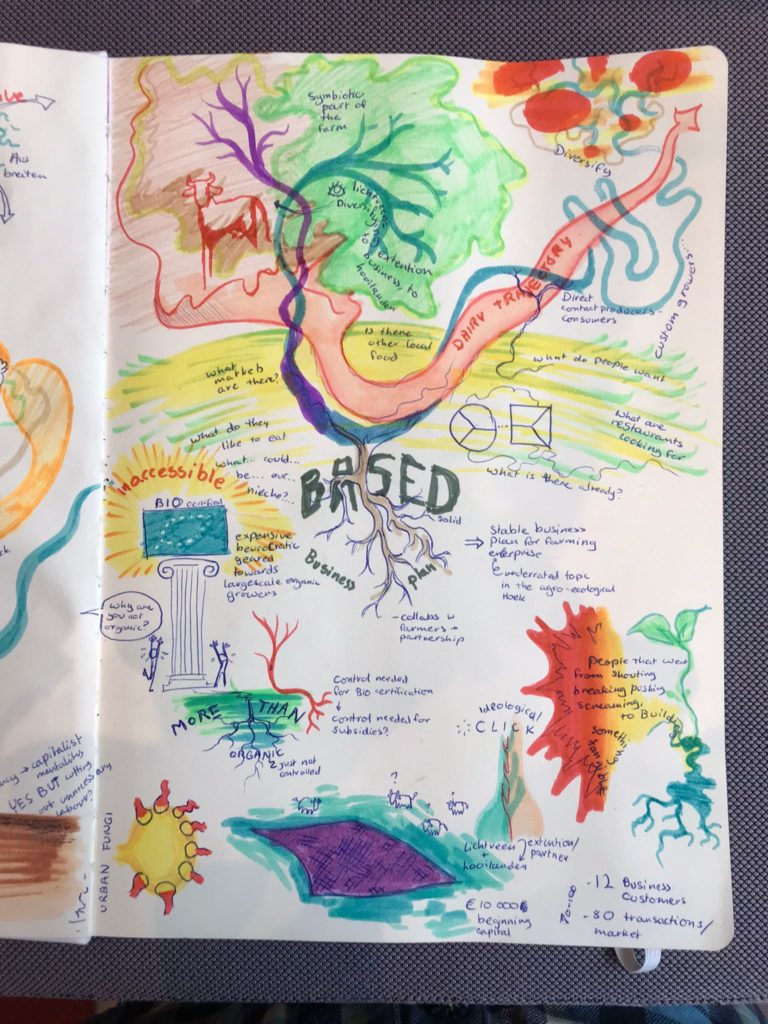 ive
breiten
Symbiotic
part of
the
farm
Diversify
lichtveen:
Diversifying extention
to business, to
hooilanden
DAIRY TRAJECTORY
Direct
contact producers -
consumers
custom growers...
Is there
other local
food
what
markets
are there?
what do people want
What are
restaurants
looking for
what is there already?
what do they
like to eat
what... could...
be... our...
nieche?...
BASED
solid
Business
plan
⇒ Stable business
plan for farming
enterprise
underrated topic
in the agro-ecological
Hoek
- collabs w
farmers →
partnership
Inaccessible
BIO certified
expensive
beurocratic
geared
towards
largescale organic
growers
Why are
you not
organic?
Control needed
for BIO certification
↓
Control needed for
subsidies?
MORE THAN
ORGANIC
just not
controlled
Ideological
CLICK
People that went
from shouting
breaking pushing
screaming,
to Building
something
tangible
→ capitalist
mentality
YES BUT cutting
out unnecessary
labour?
URBAN FUNGI
? ? ?
Lichtveen → extention/
+ partner
hooilanden
€ 10 000
beginning
capital
- 12 Business
Customers
- 80 transactions/
market